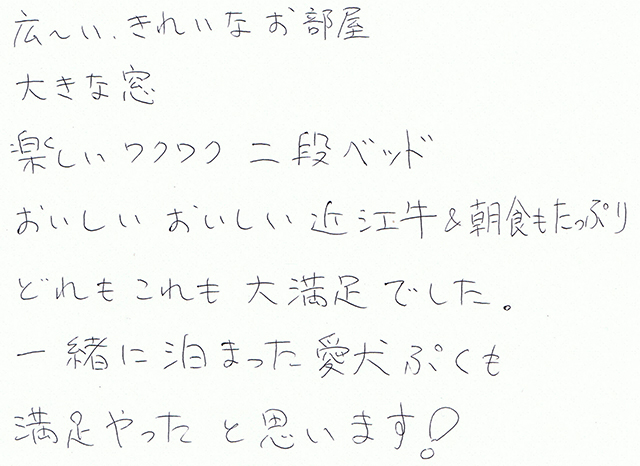 広〜い、きれいなお部屋
大きな窓
楽しいワクワク 二段ベッド
おいしい おいしい 近江牛&朝食もたっぷり
どれもこれも 大満足でした。
一緒に泊まった愛犬ぷくも
満足やったと思います!